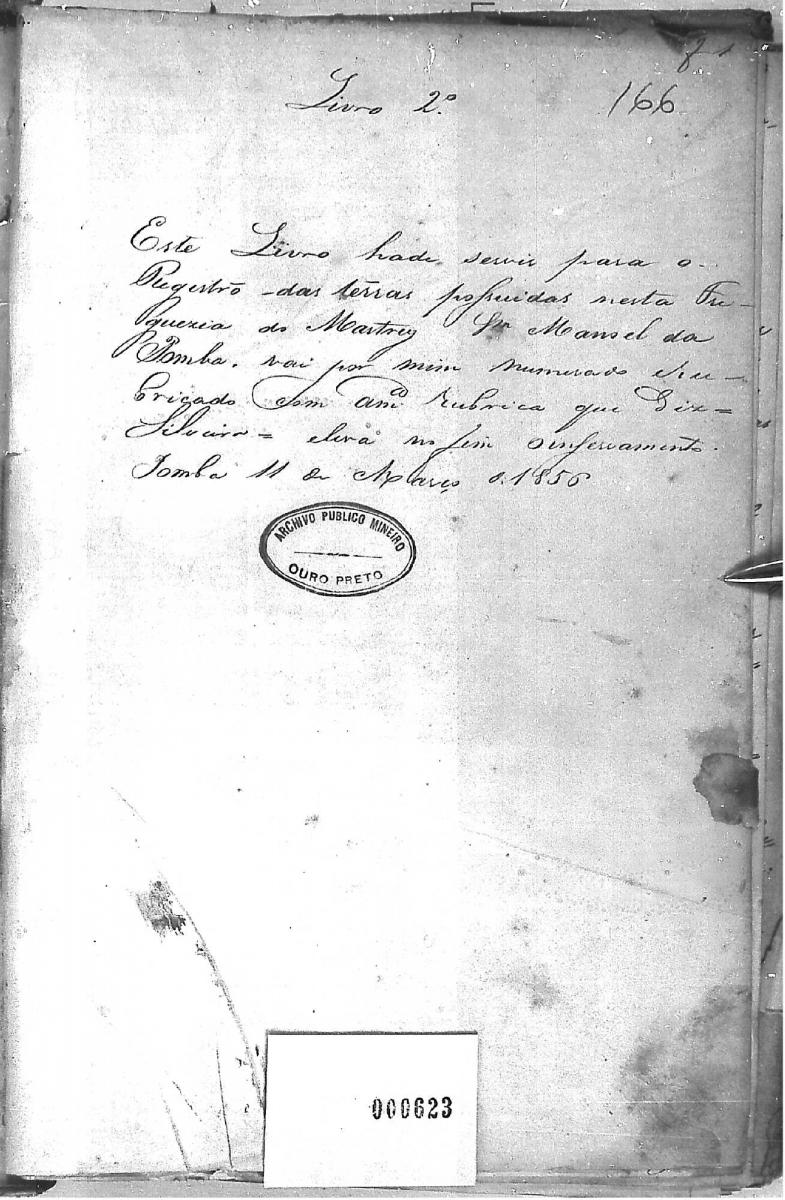 f 1
Livro 2.º 166
Este Livro hade servir para o
Registro das terras possuidas nesta Fre-
guezia do Martrey Sm Manoel da
Pomba. vai por mim numerado e ru-
bricado Com a mca Rubrica que Diz=
Silveira= eleva no fim o inserramento.
Pomba 11 de Março d. 1856
ARCHIVO PUBLICO MINEIRO
OURO PRETO
000623